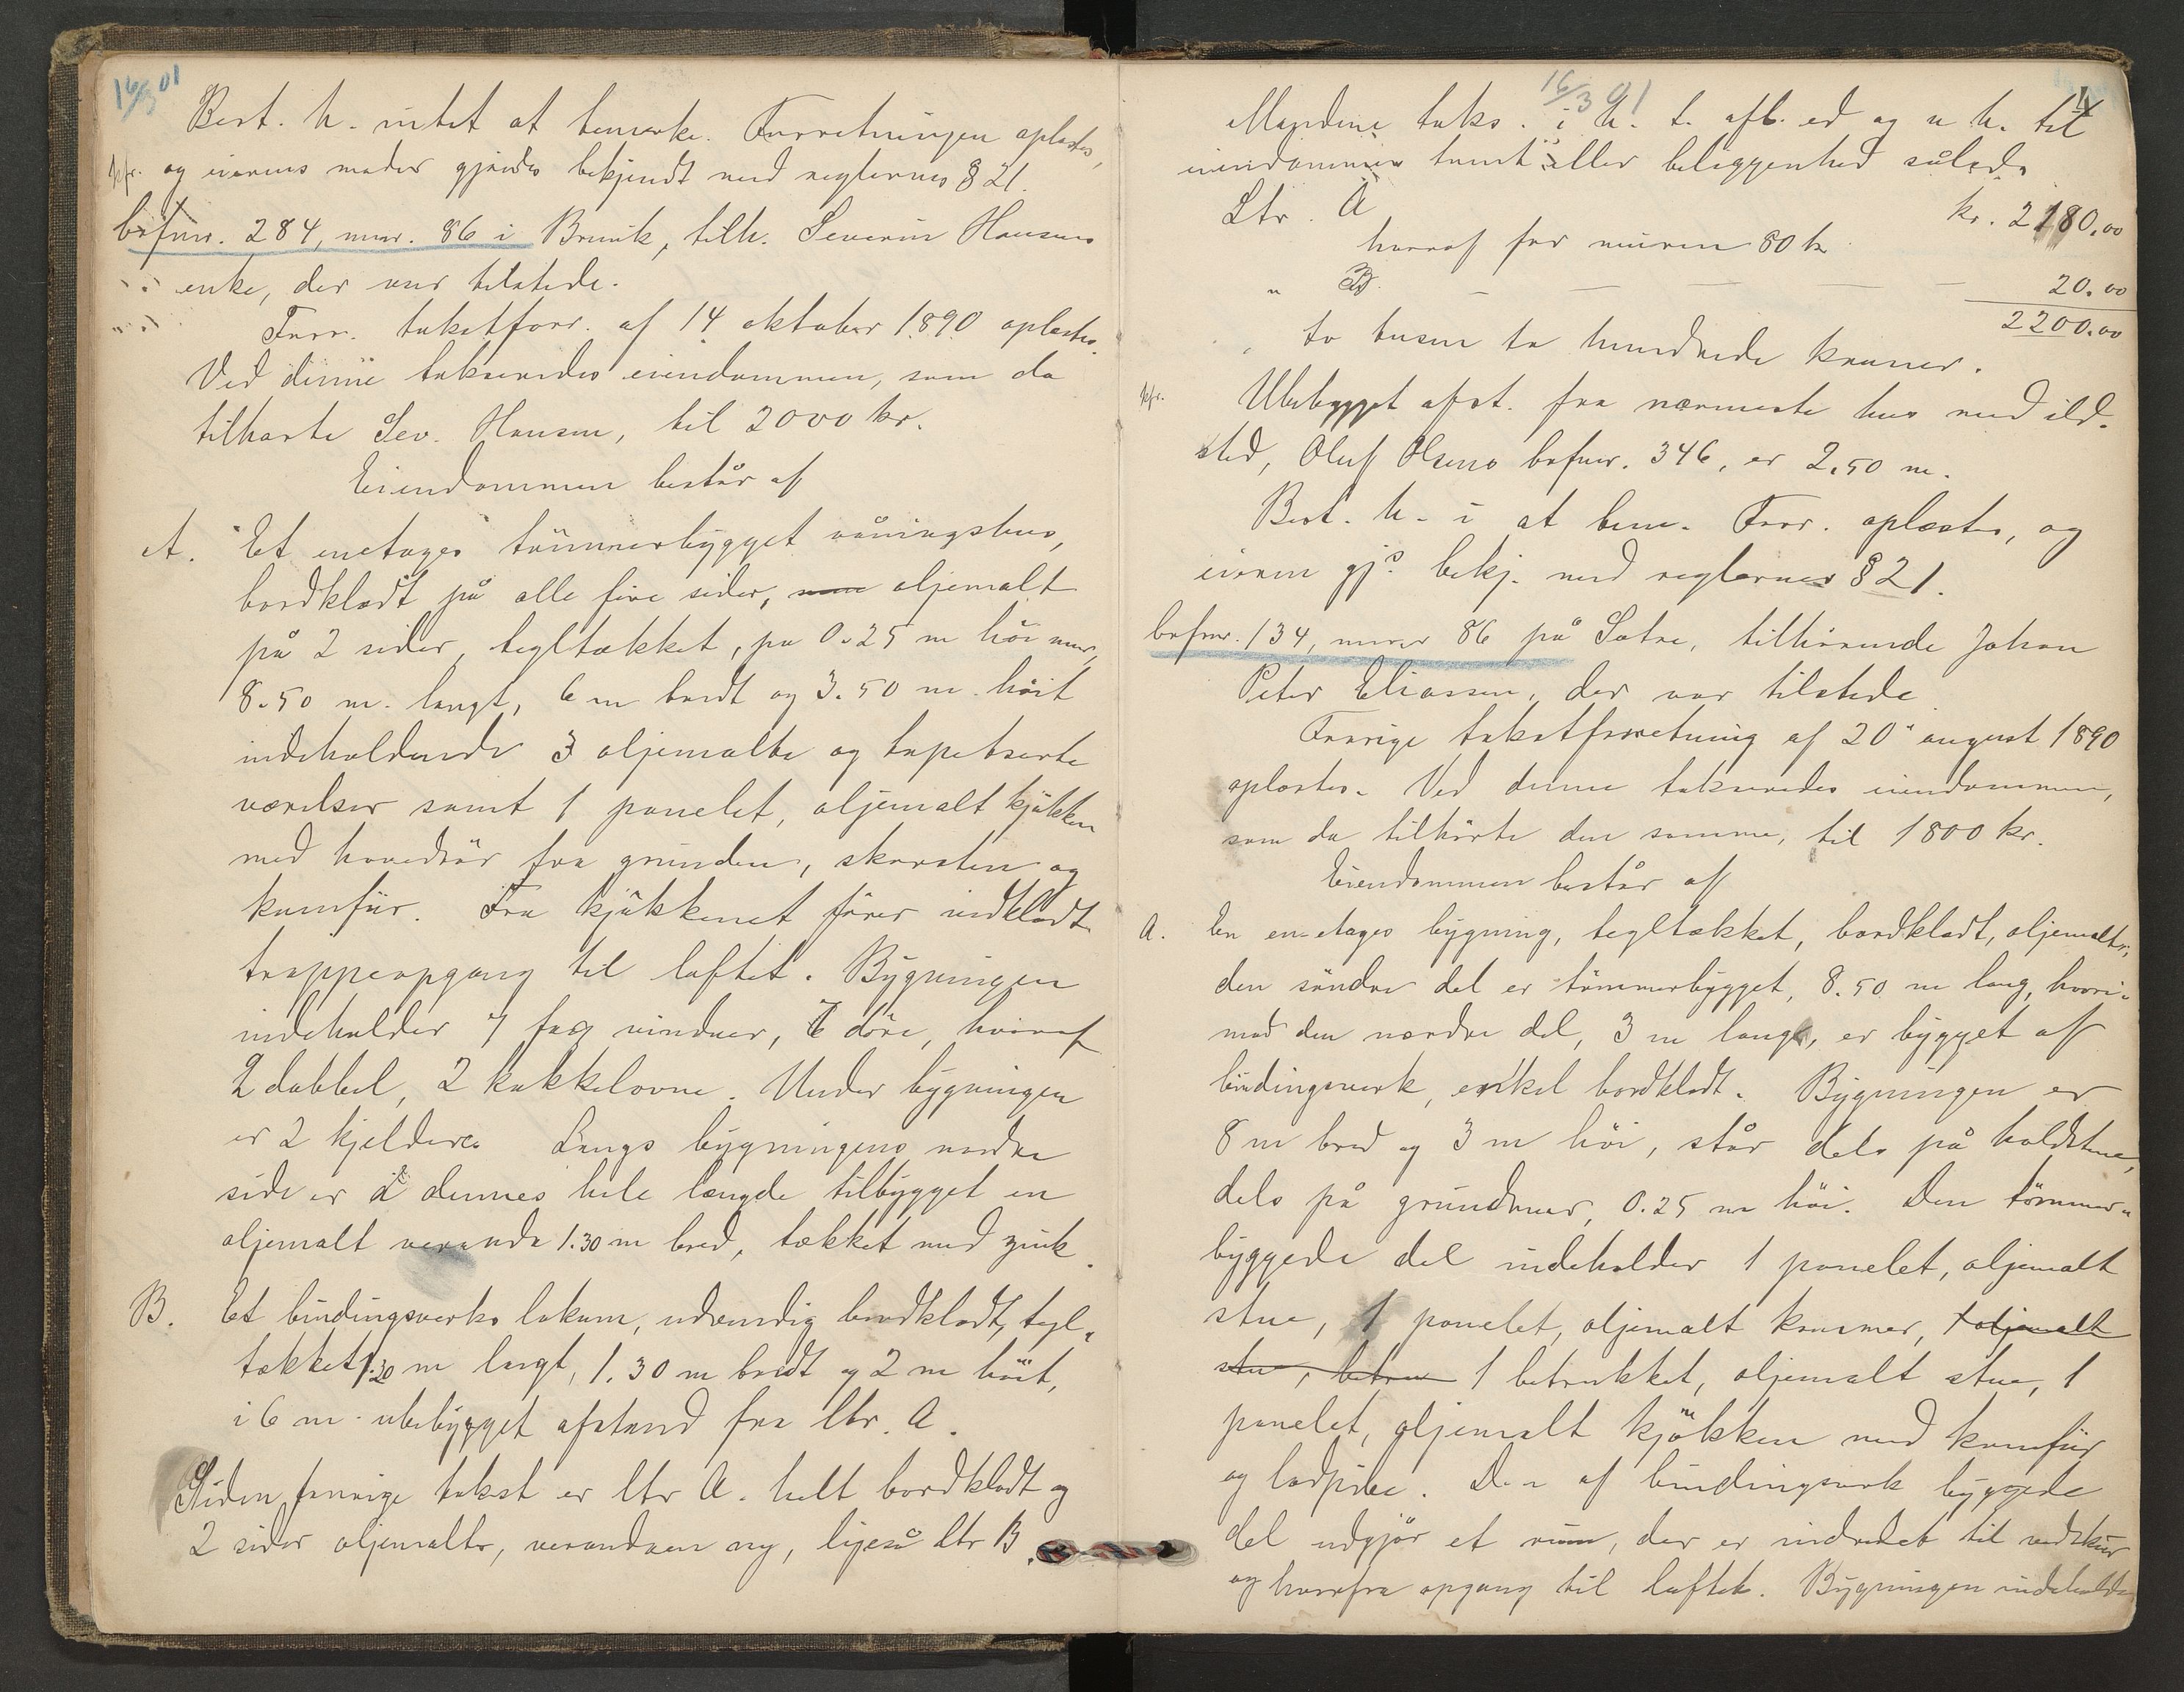 16/3 01
Best. h. intet at bemerke. Forretningen oplæstes,
kfr. og eierens møder gjordes bekjendt med reglernes § 21.
brfnr. 284, mnr. 86 i Brevik, tilh. Severin Hansens
enke, der var tilstede.
Forr. takstforr. af 14 oktober 1890 oplæstes.
Ved denne takseredes eiendommen, som da
tilhørte Sev. Hansen, til 2000 kr.
Eiendommen består af
A. Et enetages tømmerbygget våningshus,
bordklædt på alle fire sider, oljemalt
på 2 sider, tegltækket, pa 0.25 m høi mur,
8.50 m. langt, 6 m bredt og 3.50 m. høit
indeholdende 3 oljemalte og tapetserte
værelser samt 1 panelet, oljemalt kjøkken
med hovedrør fra grunden, skorsten og
komfür. Fra kjøkkenet fører indklædt
trappeopgang til loftet. Bygningen
indeholder 7 fag vinduer, 6 døre, hvoraf
2 dobbel, 2 kakkelovne. Under bygningen
er 2 kjeldere. Langs bygningens nordre
side er i dennes hele længde tilbygget en
oljemalt veranda 1.30 m bred, tækket med zink.
B. Et bindingsverks lokum, udvendig bordklædt, tegl-
tækket 1.20 m langt, 1.30 m bredt og 2 m høit,
i 6 m. ubebygget afstand fra ltr. A.
Siden forrige takst er ltr A. helt bordklædt og
2 sider oljemalte, verandaen ny, ligeså ltr B.
16/3 01
4
Mændene taks. i h. t. afl. ed og u h. til
eiendommens tomt eller beliggenhed således
Ltr. A kr. 2180.00
hvoraf for muren 80 kr
" B. — — — — 20.00
2200.00
to tusen to hundrede kroner.
kfr. Ubebygget afst. fra nærmeste hus med ild-
sted, Oluf Olsens brfnr. 346, er 2.50 m.
Best. h. i at bem. Forr. oplæstes, og
eieren gjs. bekj. med reglernes § 21.
brfnr. 134, mnr 86 på Sætre, tilhørende Johan
Peter Eliassen, der var tilstede
Forrige takstforretning af 20 august 1890
oplæstes. Ved denne takseredes eiendommen,
som da tilhørte den samme, til 1800 kr.
Eiendommen består af
A. En enetages bygning, tegltækket, bordklædt, oljemalt;
den søndre del er tømmerbygget, 8.50 m lang, hvori-
mod den nordre del, 3 m lang, er bygget af
bindingsverk, enkel bordklædt. Bygningen er
8 m bred og 3 m høi, står dels på holdstene,
dels på grundmur, 0.25 m høi. Den tømmer-
byggede del indeholder 1 panelet, oljemalt
stue, 1 panelet, oljemalt kammer, 1 oljemalt
stue, betru 1 betrukket, oljemalt stue, 1
panelet, oljemalt kjøkken med komfür
og lodpibe. Den af bindingsverk byggede
del udgjør et rum, der er indredet til vedskür
og hvorfra opgang til loftet. Bygningen indeholder